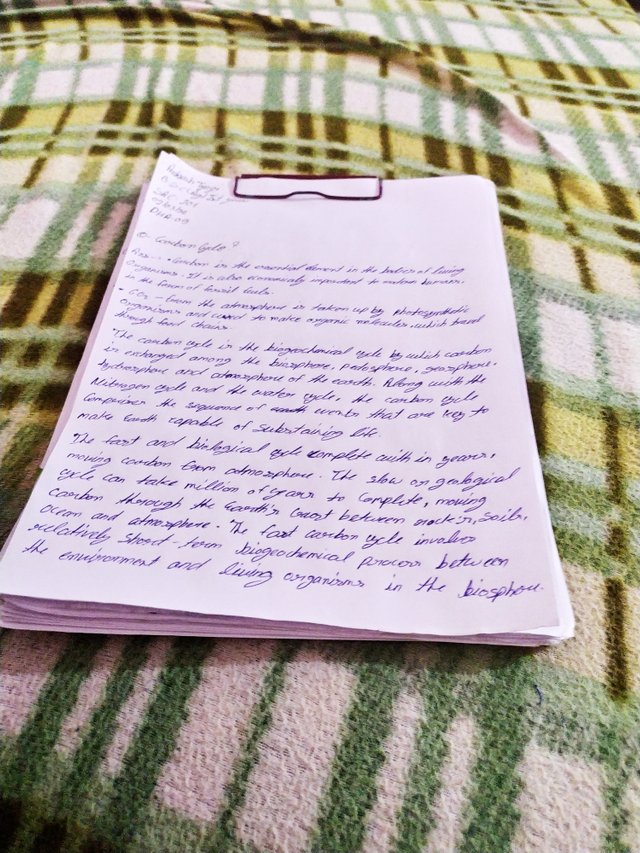 Q- Carbon Cycle ?
Ans... - Carbon is the essential element in the bodies of living
Organisms. It is also economically important to modern humans.
in the form of fossil fuels.
- CO₂ - from the atmosphere is taken up by photosynthetic
Organisms and used to make organic molecules, which travel
through food chains.
"The carbon cycle is the biogeochemical cycle by which carbon
is exchanged among the biosphere, pedosphere, geosphere,
hydrosphere and atmosphere of the earth. Along with the
Nitrogen cycle and the water cycle, the carbon cycle
Comprises the sequence of events that are key to
make Earth capable of substaining life.
The fast and biological cycle complete with in years,
moving carbon from atmosphere. The slow or geological
cycle can take million of years to complete, moving
carbon thorough the Earth's crust between rocks, soils,
Ocean and atmosphere. "The fast carbon cycle involves
relatively short-term biogeochemical process between
the environment and living organisms in the biosphere.